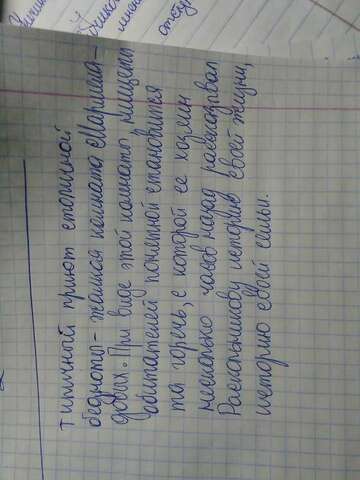 Типичный приют столичной
бедноты - жалкая комната Мармела-
довых. При виде этой комнаты нищеты
обитателей понятной становится
та горечь, с которой ее хозяин
несколько часов назад рассказывал
Раскольникову историю своей жизни,
историю своей семьи.